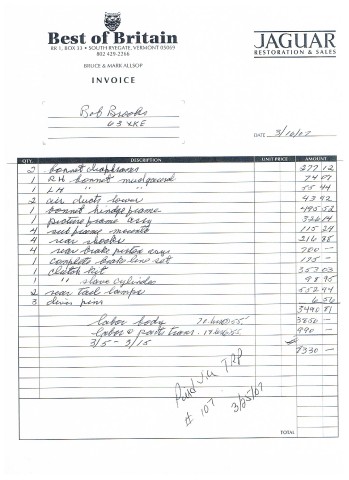 Best of Britain
RR 1, BOX 33 • SOUTH RYEGATE, VERMONT 05069
802 429-2266
BRUCE & MARK ALLSOP
INVOICE
JAGUAR
RESTORATION & SALES
Bob Brooks
63 XKE
DATE 3/16/07
QTY. DESCRIPTION UNIT PRICE AMOUNT
2 bonnet diaphrams 277 12
1 RH bonnet mudguard 74 07
1 LH " " 55 44
2 air ducts lower 43 42
1 bonnet hinge frame 495 52
1 picture frame assy
4 mounts 115 24
4 rear shocks 216 88
4 rear brake piston 700 -
1 complete brake line set 175 -
1 clutch kit 357 03
1 " slave cylinder 98 95
2 rear tail lamps 552 94
3 pins 6 50
3490 81
labor body 70 @ 55. 3850 -
labor & parts trans. 990 -
3/5 - 3/15
8330 -
Paid
# 107 3/25/07
TOTAL